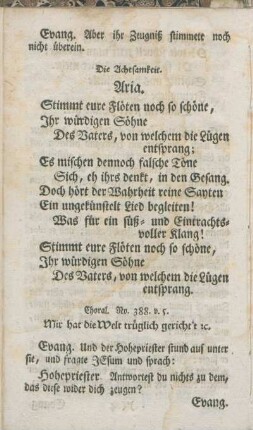 Evang. Aber ihr Zeugniß stimmete noch
nicht überein.
Die Achtsamkeit.
Aria.
Stimmt eure Flöten noch so schöne,
Ihr würdigen Söhne
Des Vaters, von welchem die Lügen
entsprang;
Es mischen dennoch falsche Töne
Sich, eh ihrs denkt, in den Gesang.
Doch hört der Wahrheit reine Sayten
Ein ungekünstelt Lied begleiten!
Was für ein süß- und Eintrachts-
voller Klang!
Stimmt eure Flöten noch so schöne,
Ihr würdigen Söhne
Des Vaters, von welchem die Lügen
entsprang.
Choral. No. 388. v. 5.
Mir hat die Welt trüglich gericht't ꝛc.
Evang. Und der Hohepriester stund auf unter
sie, und fragte JEsum und sprach:
Hohepriester. Antwortest du nichts zu dem,
das diese wider dich zeugen?
Evang.